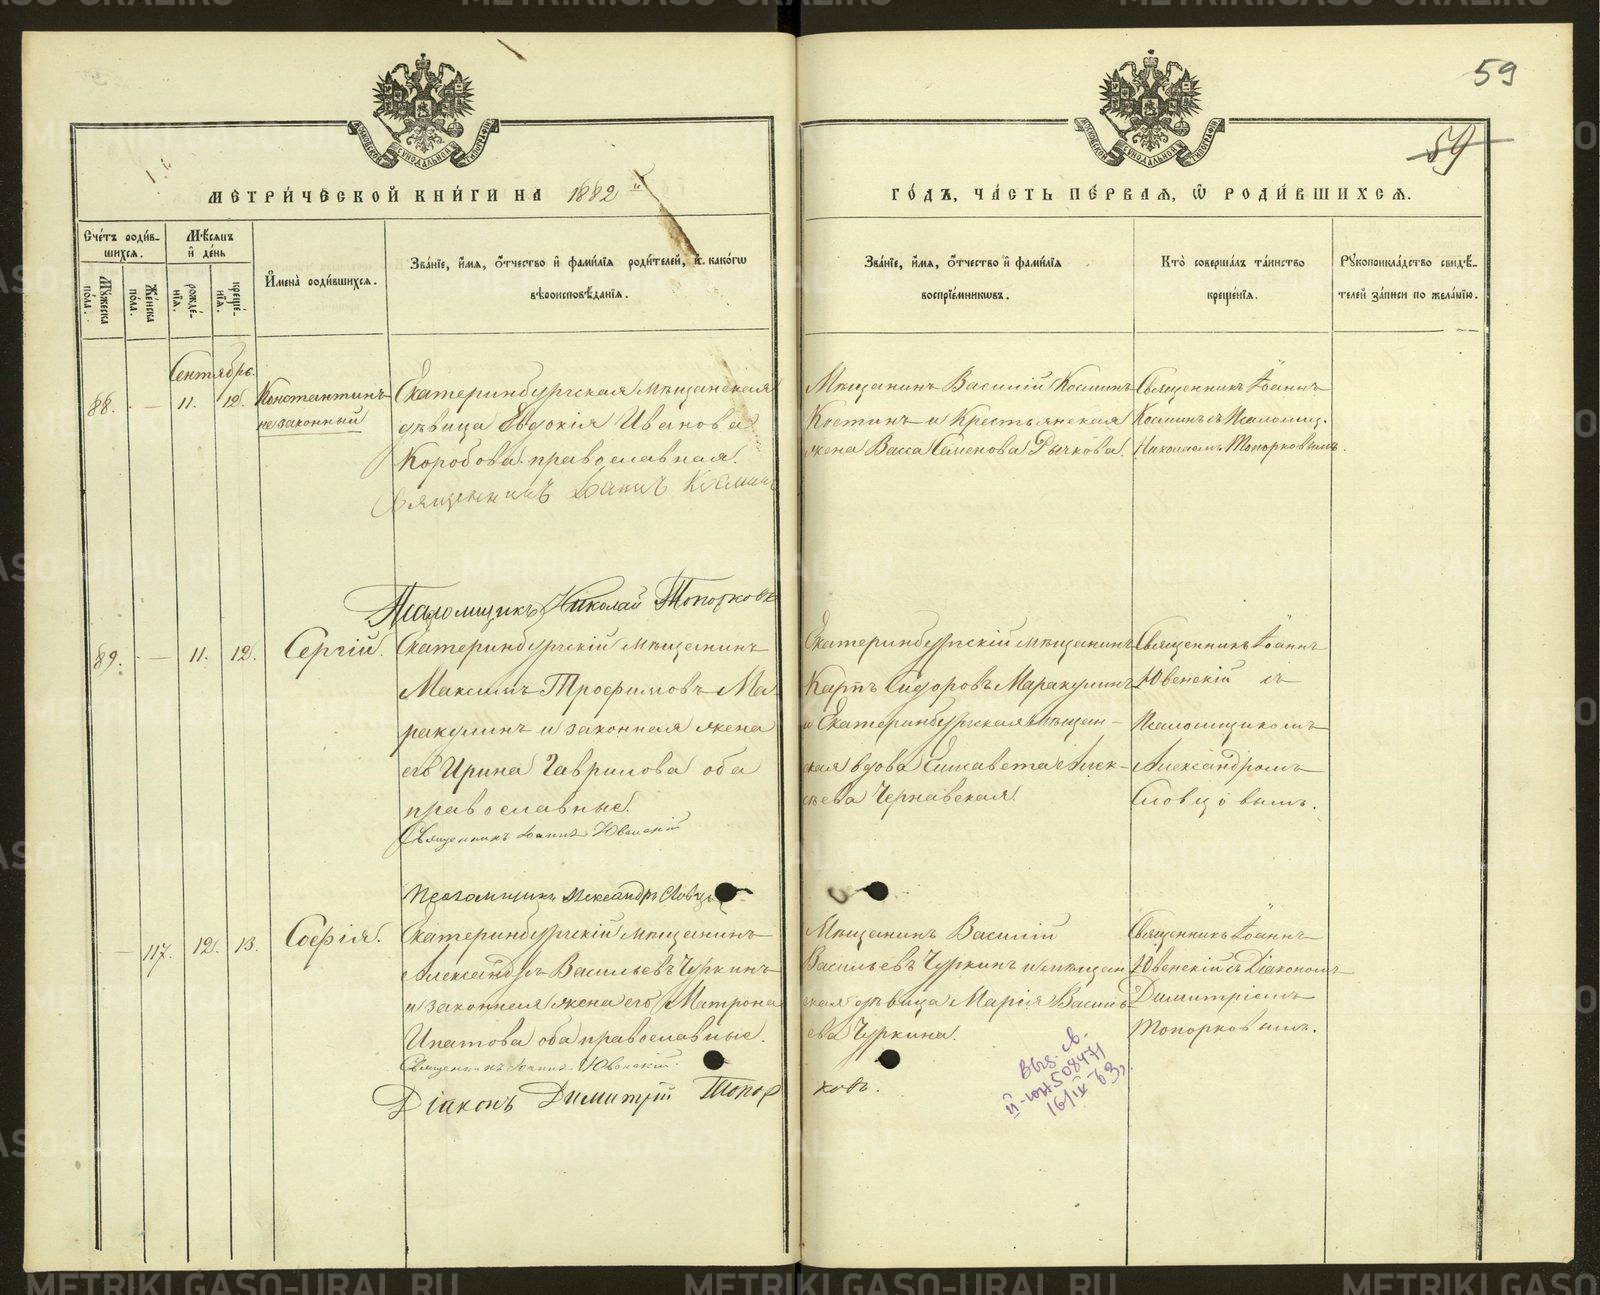 59
59
МЕТРИ́ЧЕСКОЙ КНИ́ГИ НА 1882 й
ГО́ДЪ, ЧА́СТЬ ПЕ́РВАѦ, Ѽ РОДИ́ВШИХСѦ.
Сче́тъ роди́в-
шихсѧ.
Мѣ́сѧцъ
и҆ де́нь
Мꙋжеска по́ла.
Же́нска по́ла.
рожде́-
нїѧ.
креще́-
нїѧ.
И҆мена̀ роди́вшихсѧ.
Зва́нїе, и҆́мѧ, ѻ҆́тчество и҆ фами́лїѧ роди́телей, и҆ како́гѡ
вѣроисповѣ́данїѧ.
Зва́нїе, и҆́мѧ, ѻ҆́тчество и҆ фами́лїѧ
воспрїе́мникѡвъ.
Кто̀ соверша́лъ та́инство
креще́нїѧ.
Рꙋкоприкла́дство свидѣ́-
телей за́писи по жела́нїю.
Сентябрь.
88. — 11. 12.
Константинъ
незаконный
Екатеринбургская мѣщанская
дѣвица Евдокія Иванова
Коробова православная.
Священникъ Іоаннъ Косминъ
Псаломщикъ Николай Топорковъ
Мѣщанинъ Василій Косминъ
Костинъ и Крестьянская
жена Васса Семенова Рычкова.
Священникъ Іоаннъ
Косминъ съ Псаломщ.
Николаемъ Топорковымъ.
89. — 11. 12.
Сергій.
Екатеринбургскій мѣщанинъ
Максимъ Трофимовъ Ма
ракулинъ и законная жена
его Ирина Гаврилова оба
православные.
Священникъ Іоаннъ Ювенскій
Псаломщикъ Александръ Словцо
Екатеринбургскій мѣщанинъ
Карпъ Сидоровъ Маракулинъ
и Екатеринбургская мѣщан-
ская вдова Елисавета Алек-
сѣева Чернавская.
Священникъ Іоаннъ
Ювенскій съ
Псаломщикомъ
Александромъ
Словцовымъ.
— 117. 12. 13.
Софія.
Екатеринбургскій мѣщанинъ
Александръ Васильевъ Чуркинъ
и законная жена его Матрона
Ипатова оба православные.
Священникъ Іоаннъ Ювенскій.
Діаконъ Димитрій Топор
ковъ.
Мѣщанинъ Василій
Васильевъ Чуркинъ и мѣщан
ская дѣвица Марія Василь
ева Чуркина.
Священникъ Іоаннъ
Ювенскій съ Діакономъ
Димитріемъ
Топорковымъ.
Выд. св.
II-ЮН 508471
16/IX 63г.
METRIKI.GASO-URAL.RU